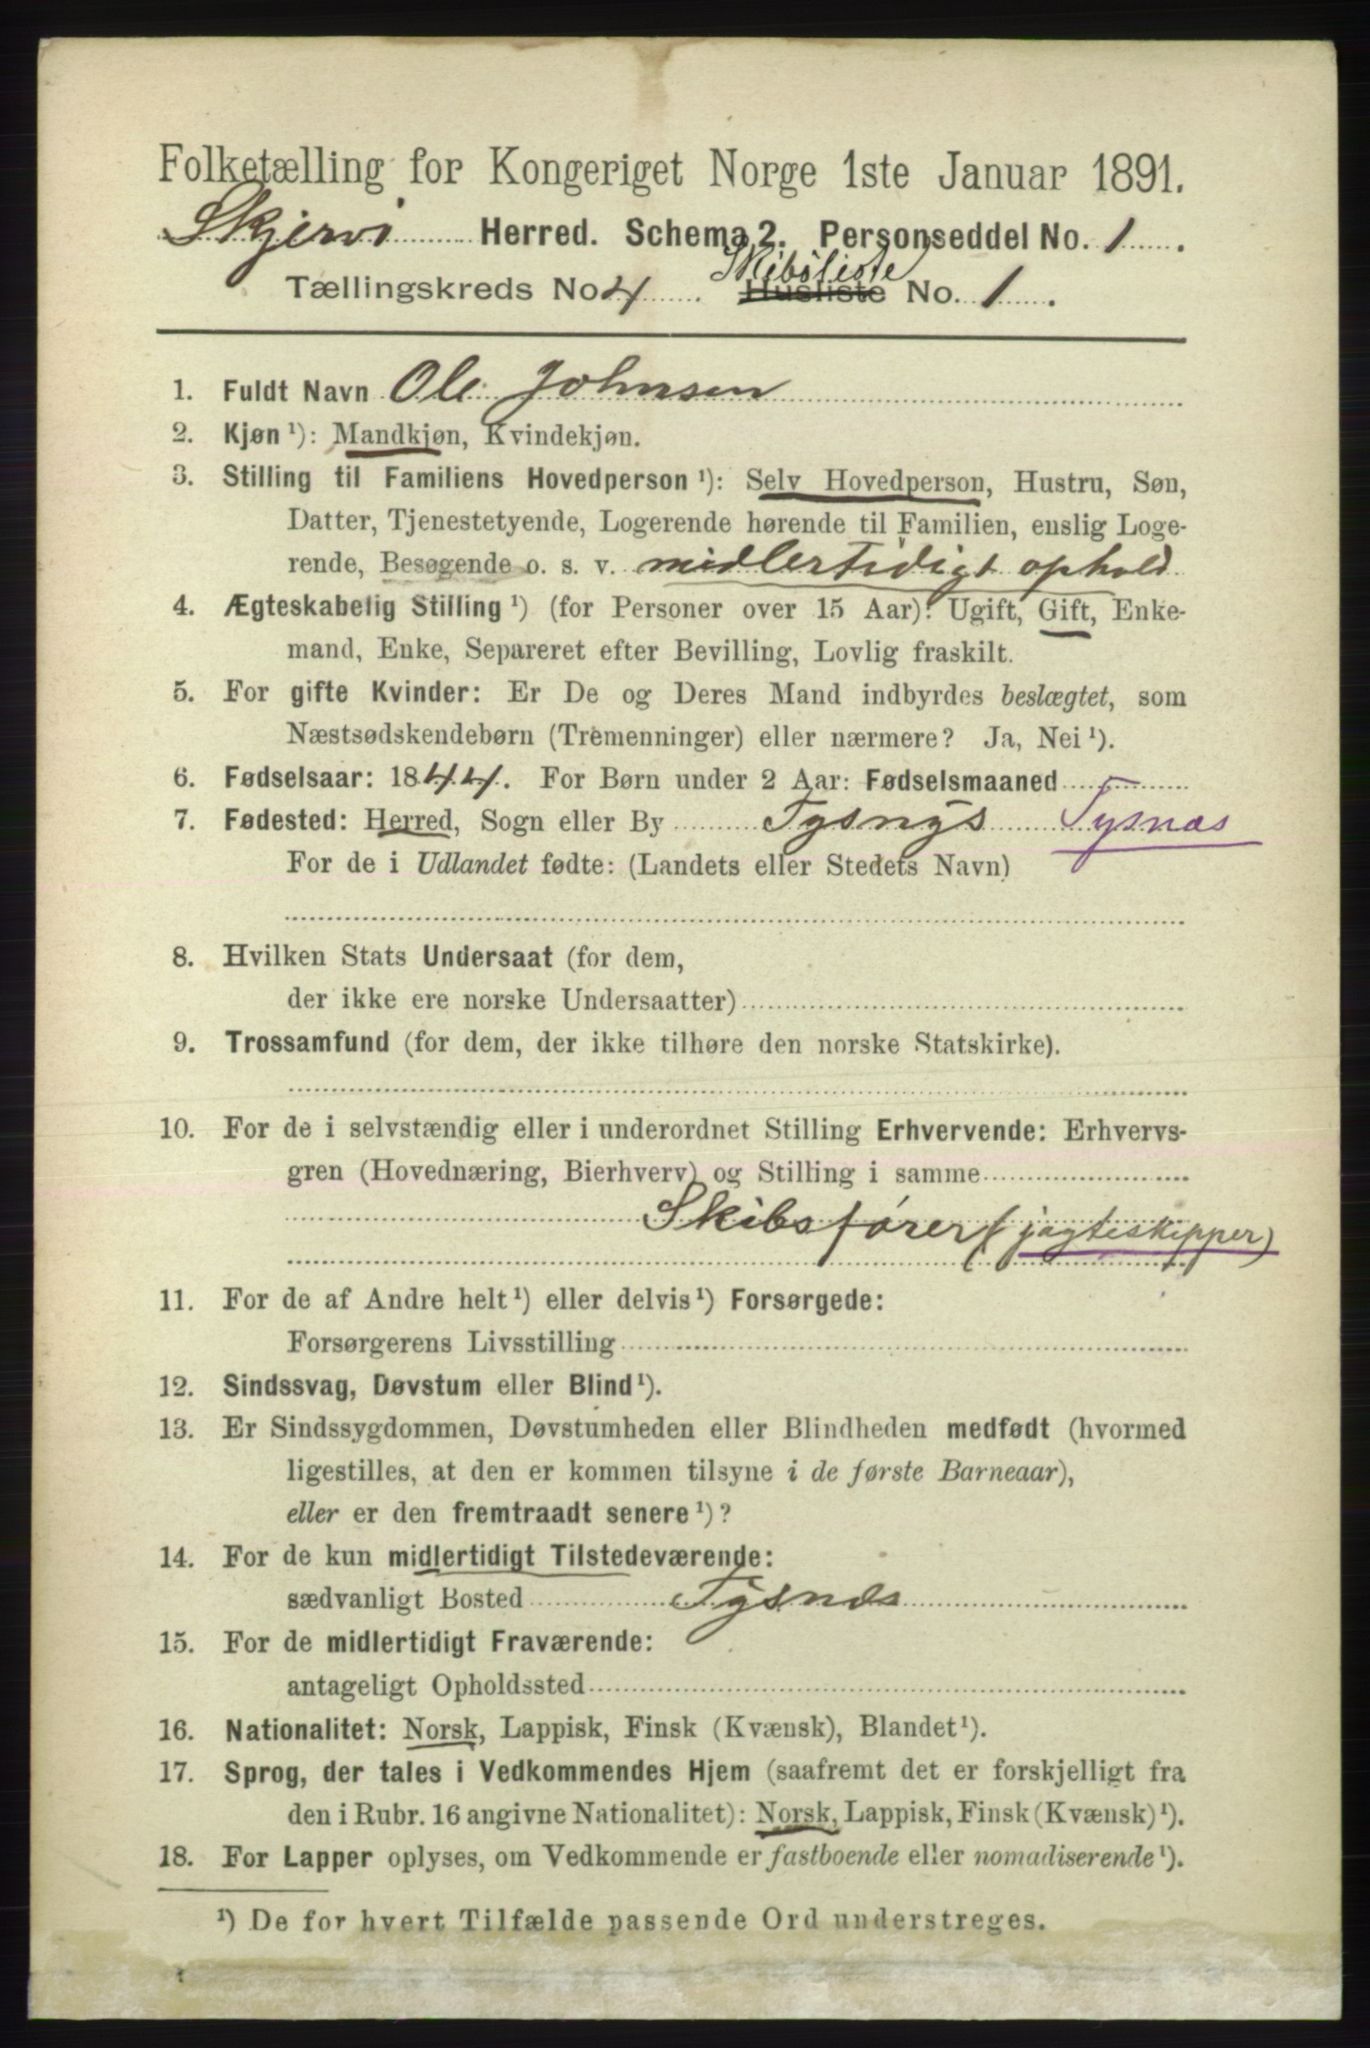 Folketælling for Kongeriget Norge 1ste Januar 1891.
Skjervø Herred. Schema 2. Personseddel No. 1.
Skibsliste
Tællingskreds No 4 Husliste No. 1.
1. Fuldt Navn Ole Johnsen
2. Kjøn ¹): Mandkjøn, Kvindekjøn.
3. Stilling til Familiens Hovedperson ¹): Selv Hovedperson, Hustru, Søn,
Datter, Tjenestetyende, Logerende hørende til Familien, enslig Loge-
rende, Besøgende o. s. v. midlertidigt ophold
4. Ægteskabelig Stilling ¹) (for Personer over 15 Aar): Ugift, Gift, Enke-
mand, Enke, Separeret efter Bevilling, Lovlig fraskilt.
5. For gifte Kvinder: Er De og Deres Mand indbyrdes beslægtet, som
Næstsødskendebørn (Tremenninger) eller nærmere? Ja, Nei ¹).
6. Fødselsaar: 1844. For Børn under 2 Aar: Fødselsmaaned
7. Fødested: Herred, Sogn eller By Tysnys Tysnæs
For de i Udlandet fødte: (Landets eller Stedets Navn)
8. Hvilken Stats Undersaat (for dem,
der ikke ere norske Undersaatter)
9. Trossamfund (for dem, der ikke tilhøre den norske Statskirke).
10. For de i selvstændig eller i underordnet Stilling Erhvervende: Erhvervs-
gren (Hovednæring, Bierhverv) og Stilling i samme
Skibsfører (jagteskipper)
11. For de af Andre helt ¹) eller delvis ¹) Forsørgede:
Forsørgerens Livsstilling
12. Sindssvag, Døvstum eller Blind ¹).
13. Er Sindssygdommen, Døvstumheden eller Blindheden medfødt (hvormed
ligestilles, at den er kommen tilsyne i de første Barneaar),
eller er den fremtraadt senere ¹)?
14. For de kun midlertidigt Tilstedeværende:
sædvanligt Bosted Tysnæs
15. For de midlertidigt Fraværende:
antageligt Opholdssted
16. Nationalitet: Norsk, Lappisk, Finsk (Kvænsk), Blandet ¹).
17. Sprog, der tales i Vedkommendes Hjem (saafremt det er forskjelligt fra
den i Rubr. 16 angivne Nationalitet): Norsk, Lappisk, Finsk (Kvænsk) ¹).
18. For Lapper oplyses, om Vedkommende er fastboende eller nomadiserende ¹).
¹) De for hvert Tilfælde passende Ord understreges.